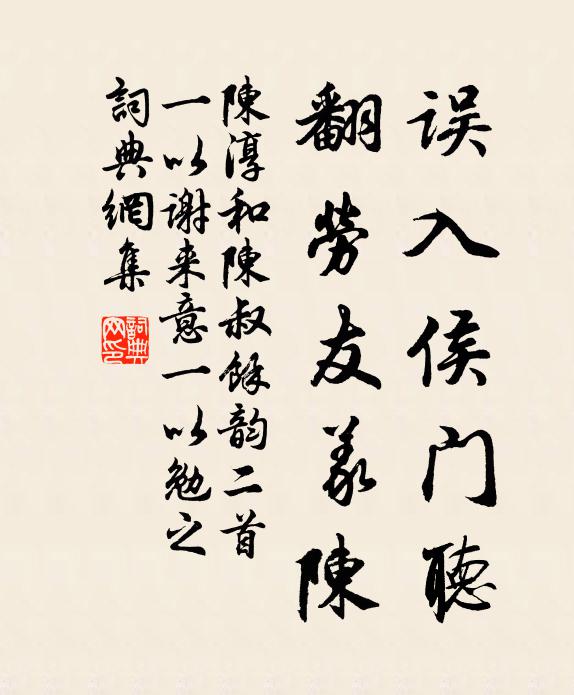 误入侯门聽
翻勞友義陳
陳淳和陳叔餘韵二首
一以谢来意一以勉之
詞典網集
詞典网印